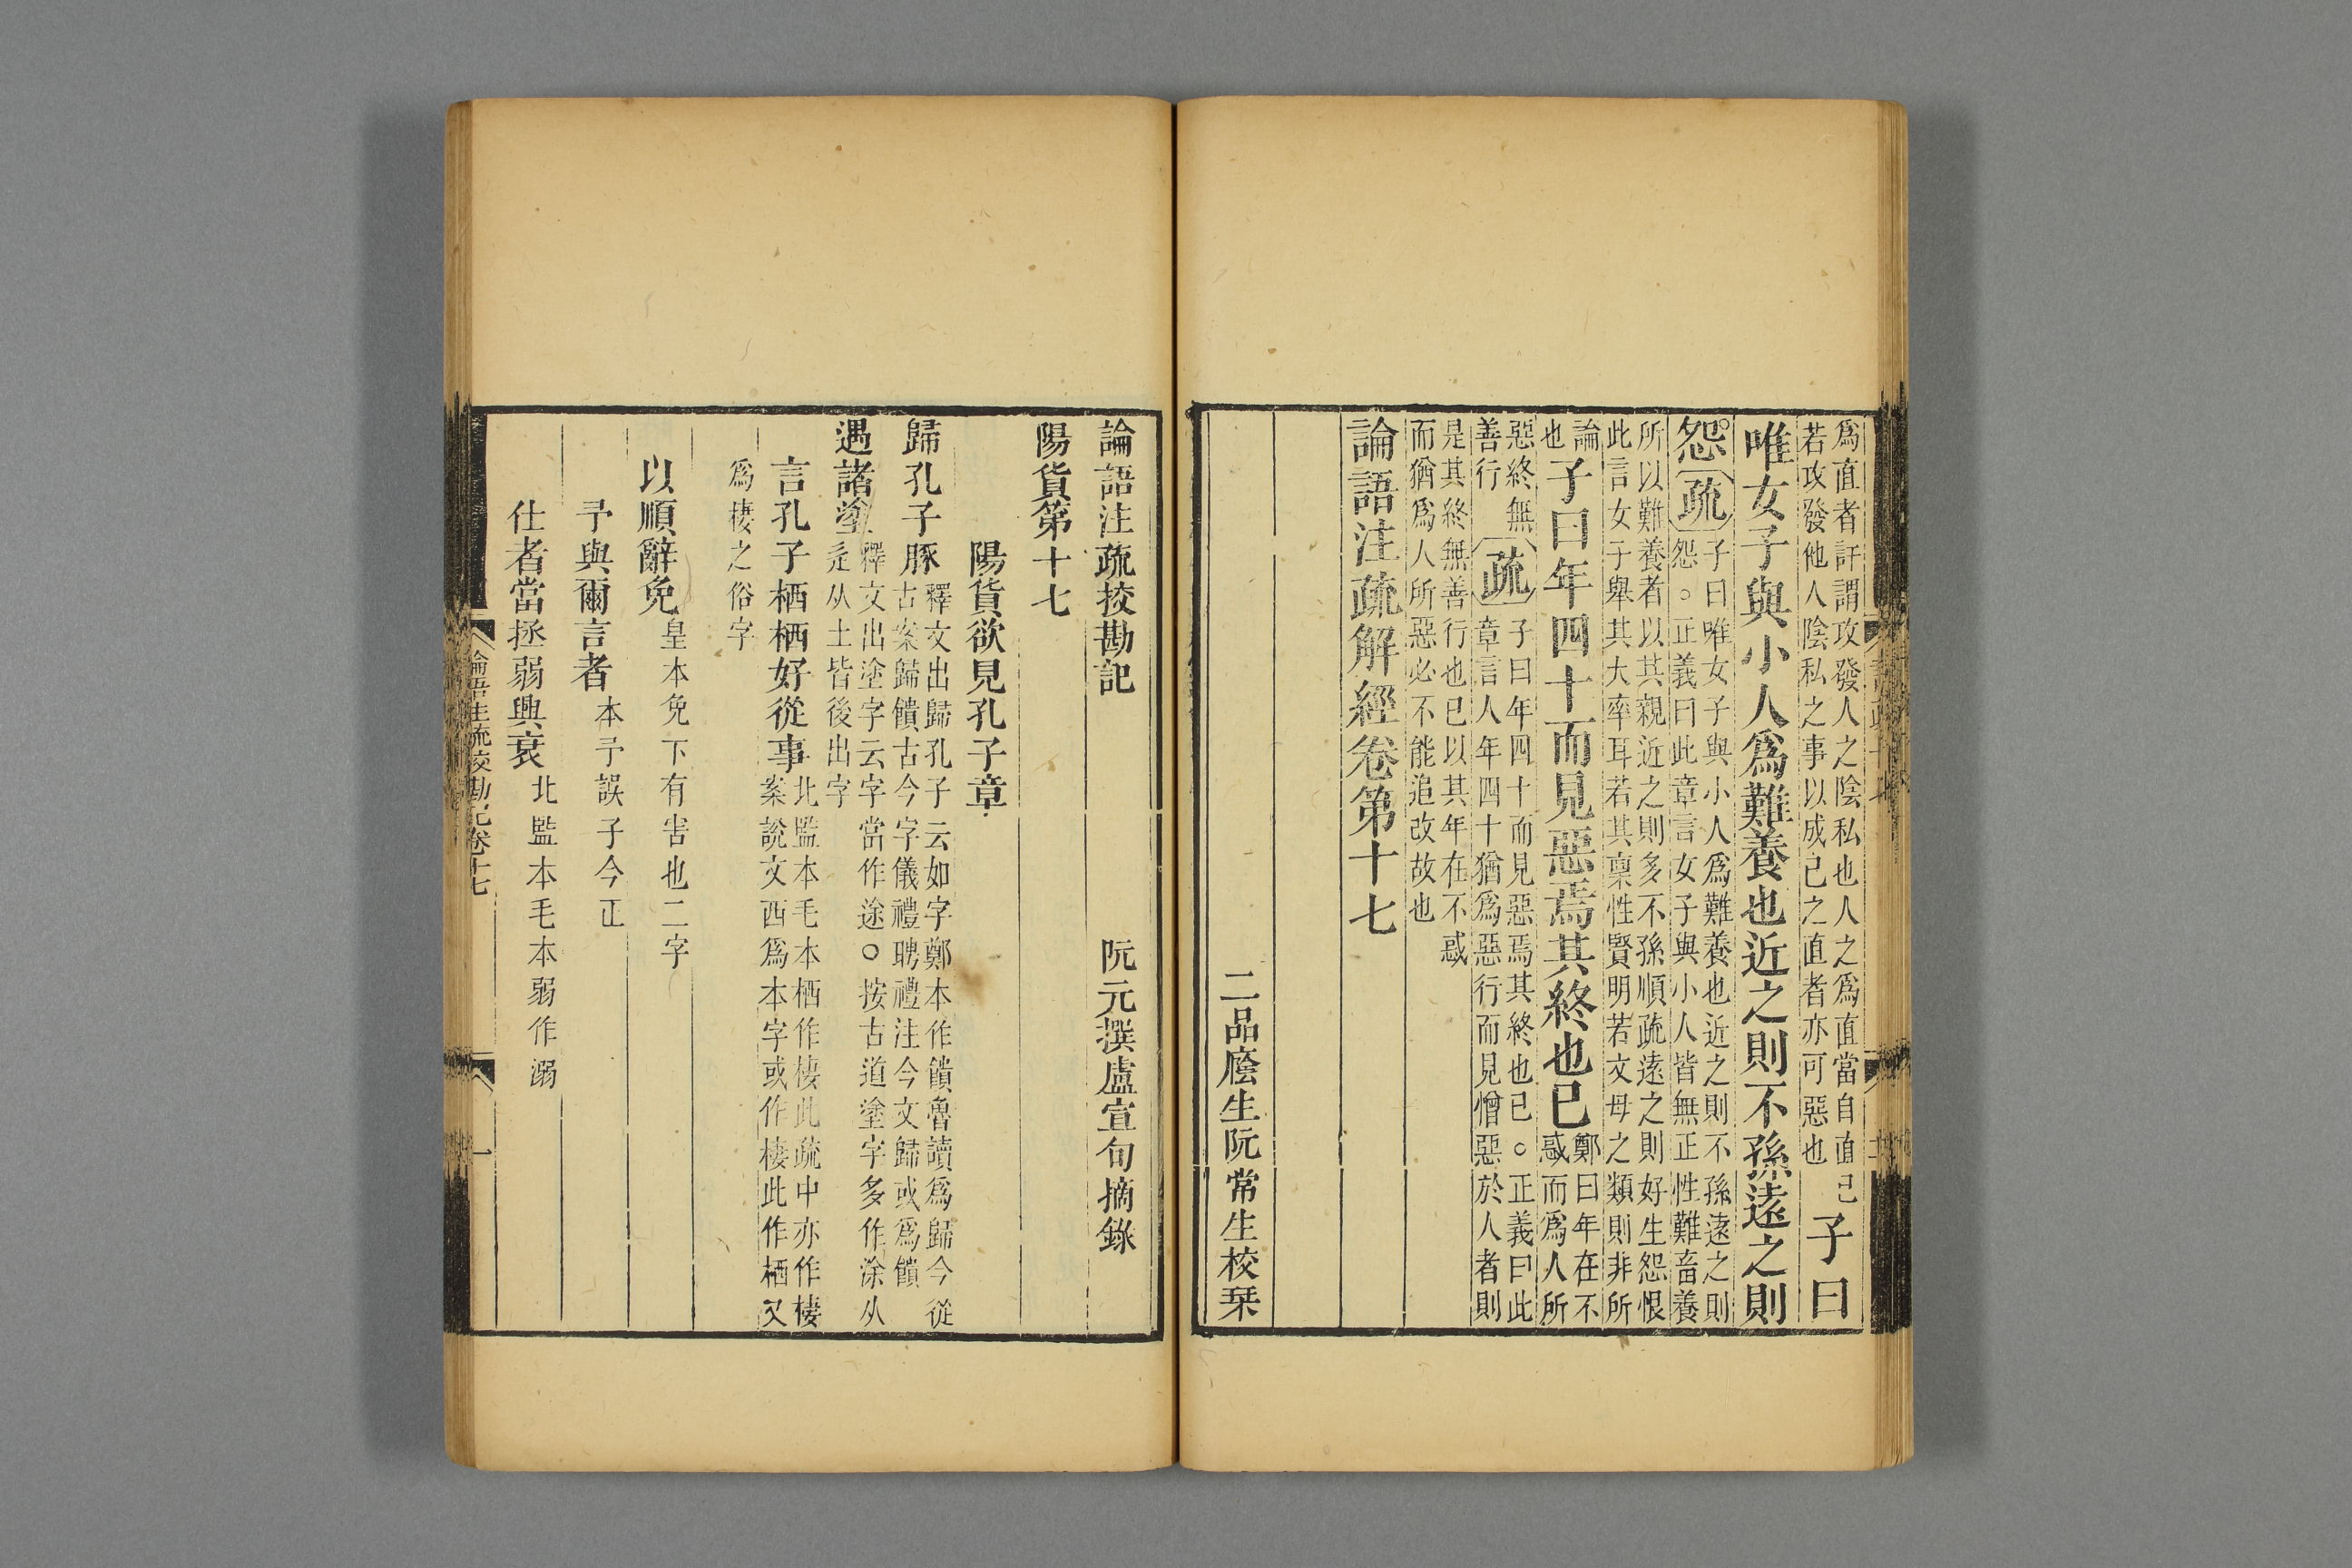 爲直者訐謂攻發人之陰私也人之爲直當自直己
若攻發他人陰私之事以成己之直者亦可惡也
子曰
唯女子與小人爲難養也近之則不孫遠之則
怨
疏
子曰唯女子與小人爲難養也近之則不孫遠之則
怨○正義曰此章言女子與小人皆無正性難畜養
所以難養者以其親近之則多不孫順疏遠之則好生怨恨
此言女子舉其大率耳若其稟性賢明若文母之類則非所
論
也
子曰年四十而見惡焉其終也已
鄭曰年在不
惑而爲人所
惡終無
善行
疏
子曰年四十而見惡焉其終也已○正義曰此
章言人年四十猶爲惡行而見憎惡於人者則
是其終無善行也已以其年在不惑
而猶爲人所惡必不能追改故也
論語注疏解經卷第十七
二品廕生阮常生校栞
論語注疏挍勘記
阮元撰盧宣旬摘錄
陽貨第十七
陽貨欲見孔子章
歸孔子豚
釋文出歸孔子云如字鄭本作饋魯讀爲歸今從
古案歸饋古今字儀禮聘禮注今文歸或爲饋
遇諸塗
釋文出塗字云字當作途○按古道塗字多作涂从
辵从土皆後出字
言孔子栖栖好從事
北監本毛本栖作棲此疏中亦作棲
案說文西爲本字或作棲此作栖又
爲棲之俗字
以順辭免
皇本免下有害也二字
予與爾言者
本予誤子今正
仕者當拯弱興衰
北監本毛本弱作溺
論語注疏校勘記卷十七
一